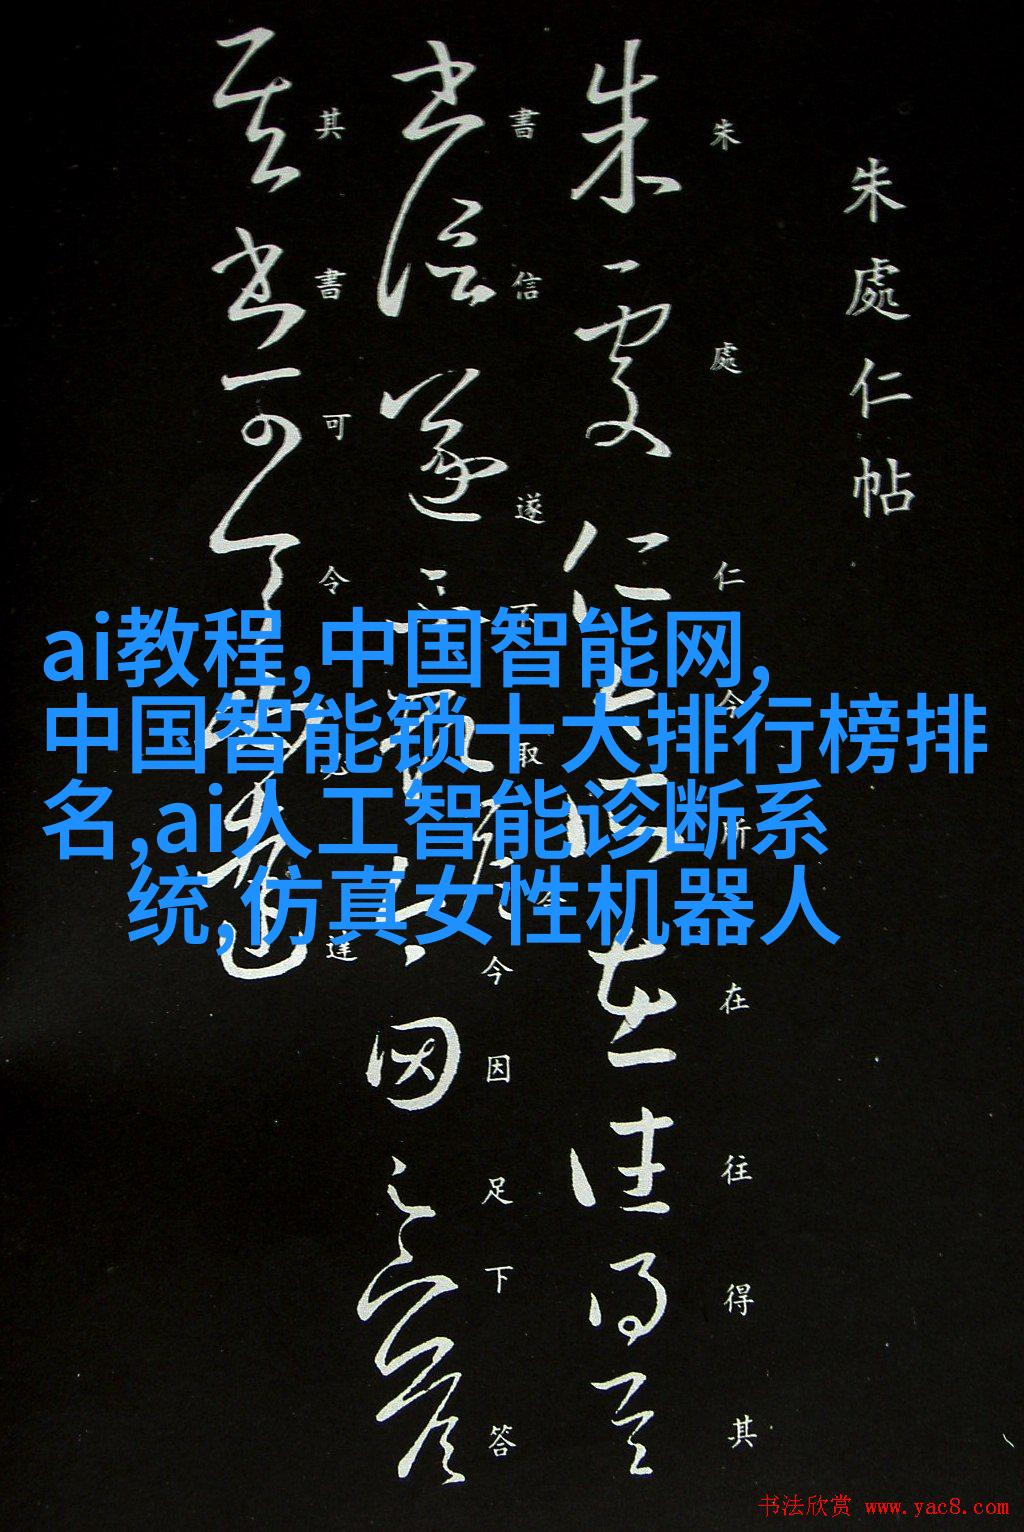 朱處仁帖
朱處仁今所在往得其
書信遂不取答今因足下答
其書可令必達
ai教程,中国智能网,
中国智能锁十大排行榜排
名,ai人工智能诊断系
统,仿真女性机器人
书法欣赏 www.yac8.com